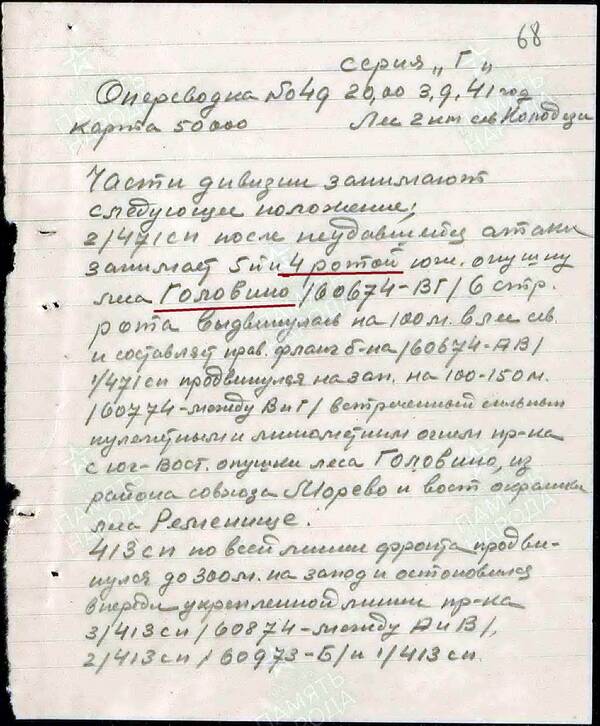 68
серия „Г„
Оперсводка №049 20,00 3,9,41 год
карта 50000 Лес 2 км сев Колодези
Части дивизии занимают
следующее положение:
2/471сп после неудавшейся атаки
занимает 5й и 4 ротой юж. опушку
леса Головино /60674-ВГ/ 6 стр.
рота выдвинулась на 100м. в лес сев.
и составляет прав. фланг б-на /60674-АВ/
1/471сп продвинулся на зап. на 100-150м.
/60774-между В и Г/ встреченный сильным
пулеметным и минометным огнем пр-ка
с юг-вост. опушки леса Головино, из
района совхоза Морево и вост окраины
леса Ременище.
413 сп по всей линии фронта продви-
нулся до 300м. на запад и остоновился
впереди укрепленной линии пр-ка
3/413сп /60874-между А и В/,
2/413сп /60973-Б/ и 1/413сп.
ПАМЯТЬ
НАРОДА